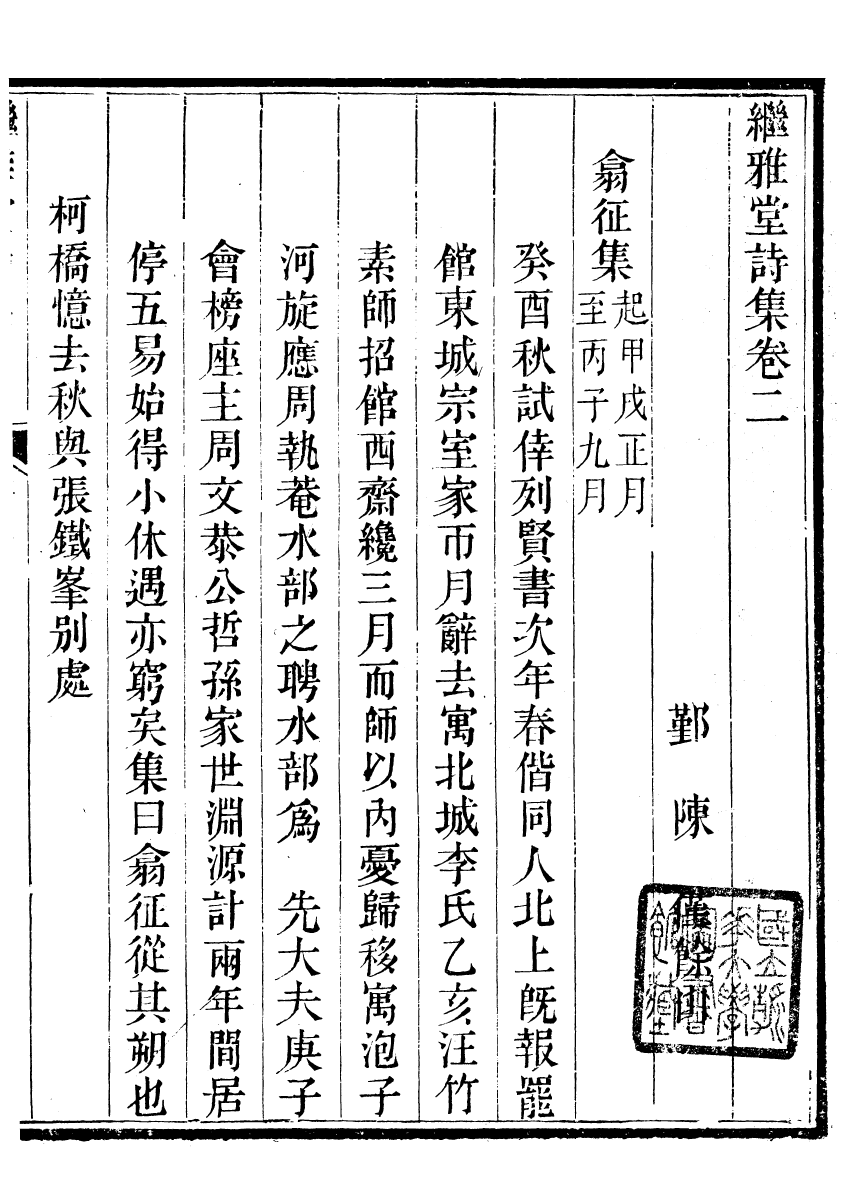 繼雅堂詩集卷二
鄞　陳　僅餘山
翕征集起甲戌正月
至丙子九月
癸酉秋試倖列賢書次年春偕同人北上旣報罷
館東城宗室家帀月辭去寓北城李氏乙亥汪竹
素師招館西齋纔三月而師以內憂歸移寓泡子
河旋應周執菴水部之聘水部爲　先大夫庚子
會榜座主周文恭公哲孫家世淵源計兩年間居
停五易始得小休遇亦窮矣集曰翕征從其朔也
柯橋憶去秋與張鐵峯別處